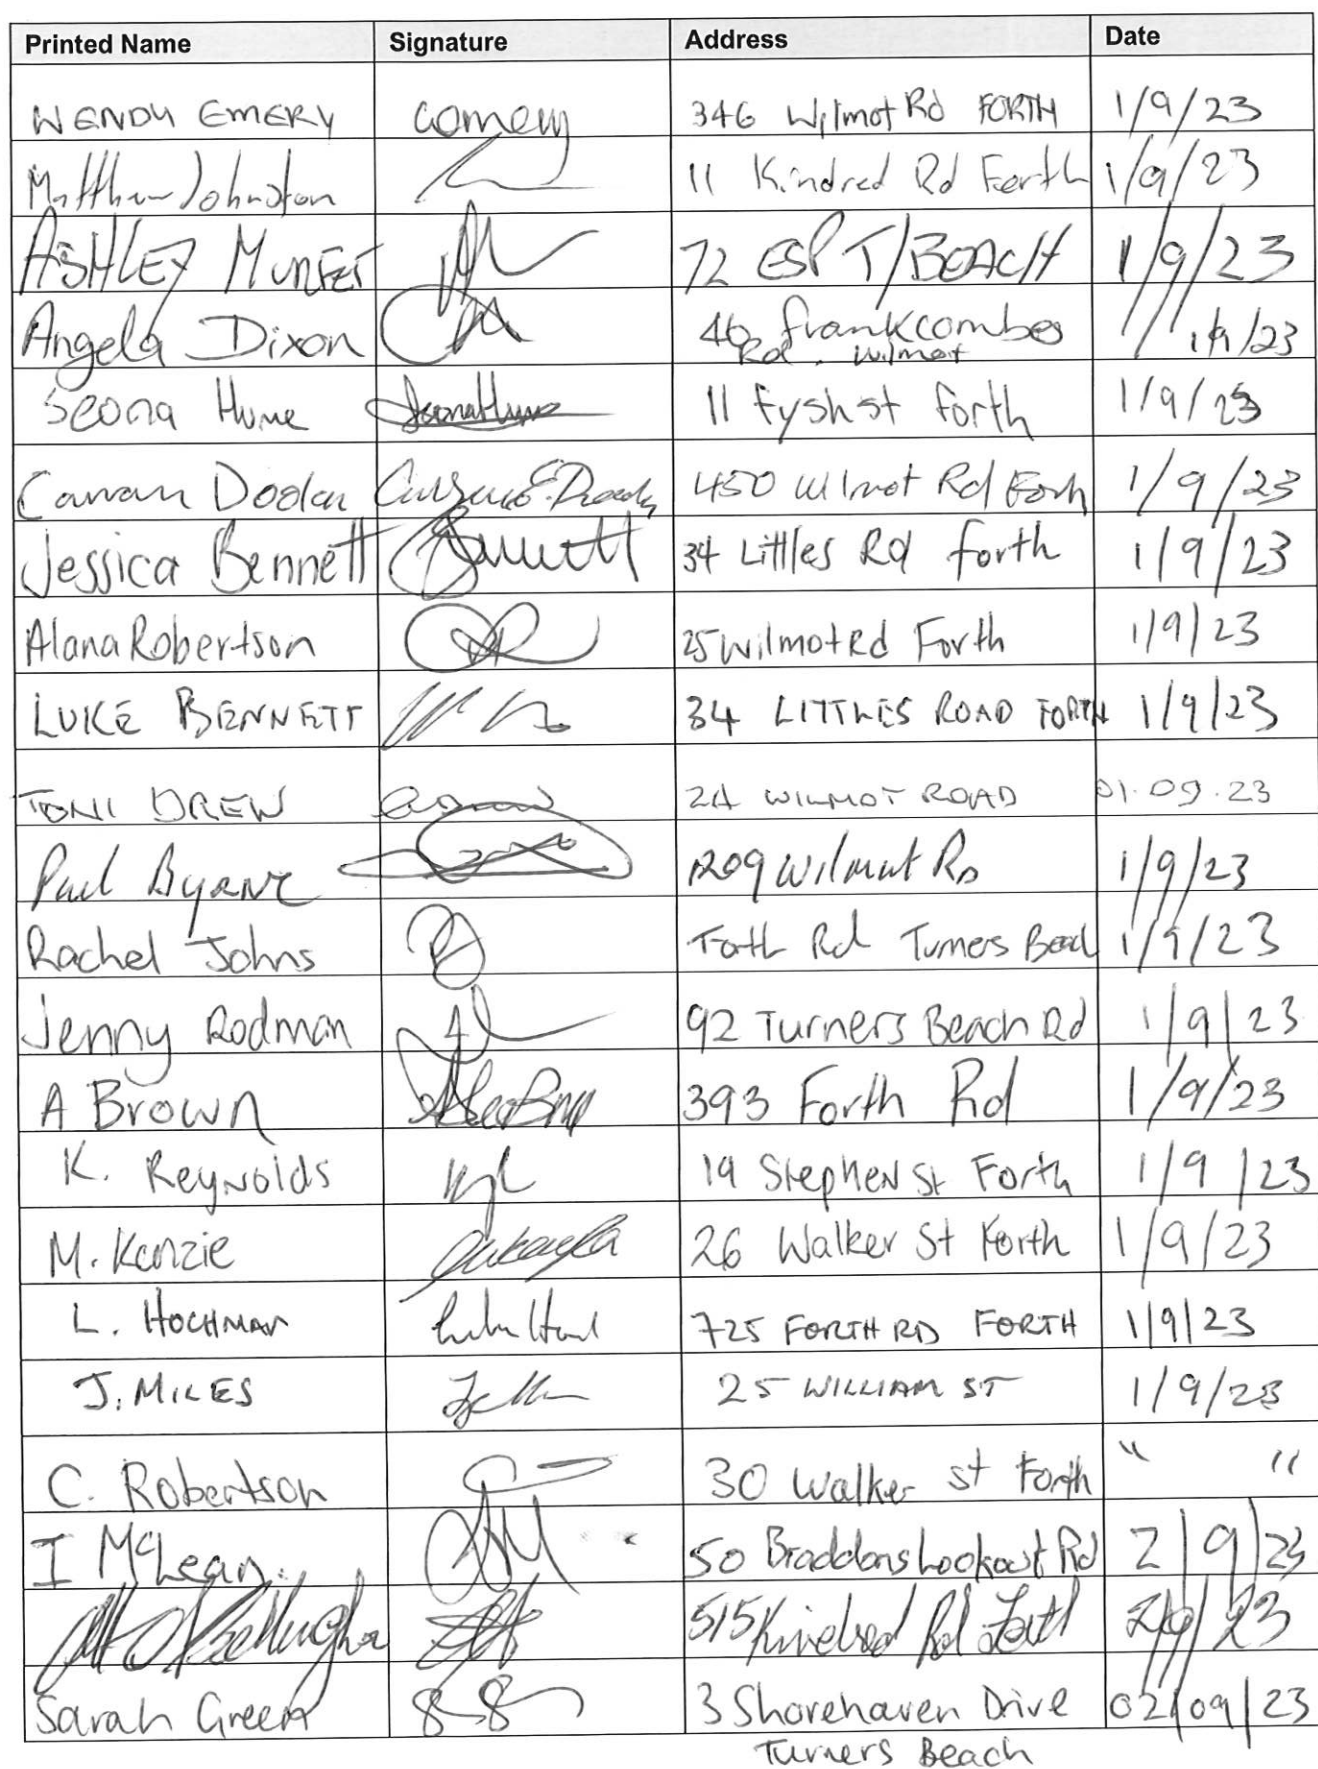 Printed Name Signature Address Date
WENDY EMERY 346 Wilmot Rd FORTH 1/9/23
Matthew Johnston 11 Kindred Rd Forth 1/9/23
ASHLEY 72 ESP T/BEACH 1/9/23
Angela Dixon 46 frankcombes 1/9/23
Rd. Wilmot
Seona Hume SeonaHume 11 Fysh st forth 1/9/23
Doolan 450 Wilmot Rd Forth 1/9/23
Jessica Bennett Bennett 34 Littles Rd forth 1/9/23
Alana Robertson 25 Wilmot Rd Forth 1/9/23
LUKE BENNETT 34 LITTLES ROAD FORTH 1/9/23
TONI DREW 24 WILMOT ROAD 01.09.23
Paul Byrne 1209 Wilmot Rd 1/9/23
Rachel Johns Forth Rd Turners Beach 1/9/23
Jenny Rodman 92 Turners Beach Rd 1/9/23
A Brown 393 Forth Rd 1/9/23
K. Reynolds 19 Stephen St Forth 1/9/23
M. Kenzie 26 Walker St Forth 1/9/23
L. HOCHMAN 725 FORTH RD FORTH 1/9/23
J. MILES 25 WILLIAM ST 1/9/23
C. Robertson 30 Walker st Forth " "
I McLean. 50 Braddons Lookout Rd 2/9/23
515 Kindred Rd Forth 2/9/23
Sarah Green 3 Shorehaven Drive 02/09/23
Turners Beach